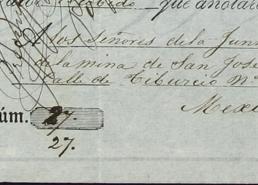 que anotará
A los Señores de la Jun
de la mina de San José
Calle de Tiburcio Nº
Mexi
úm. 27.
27.